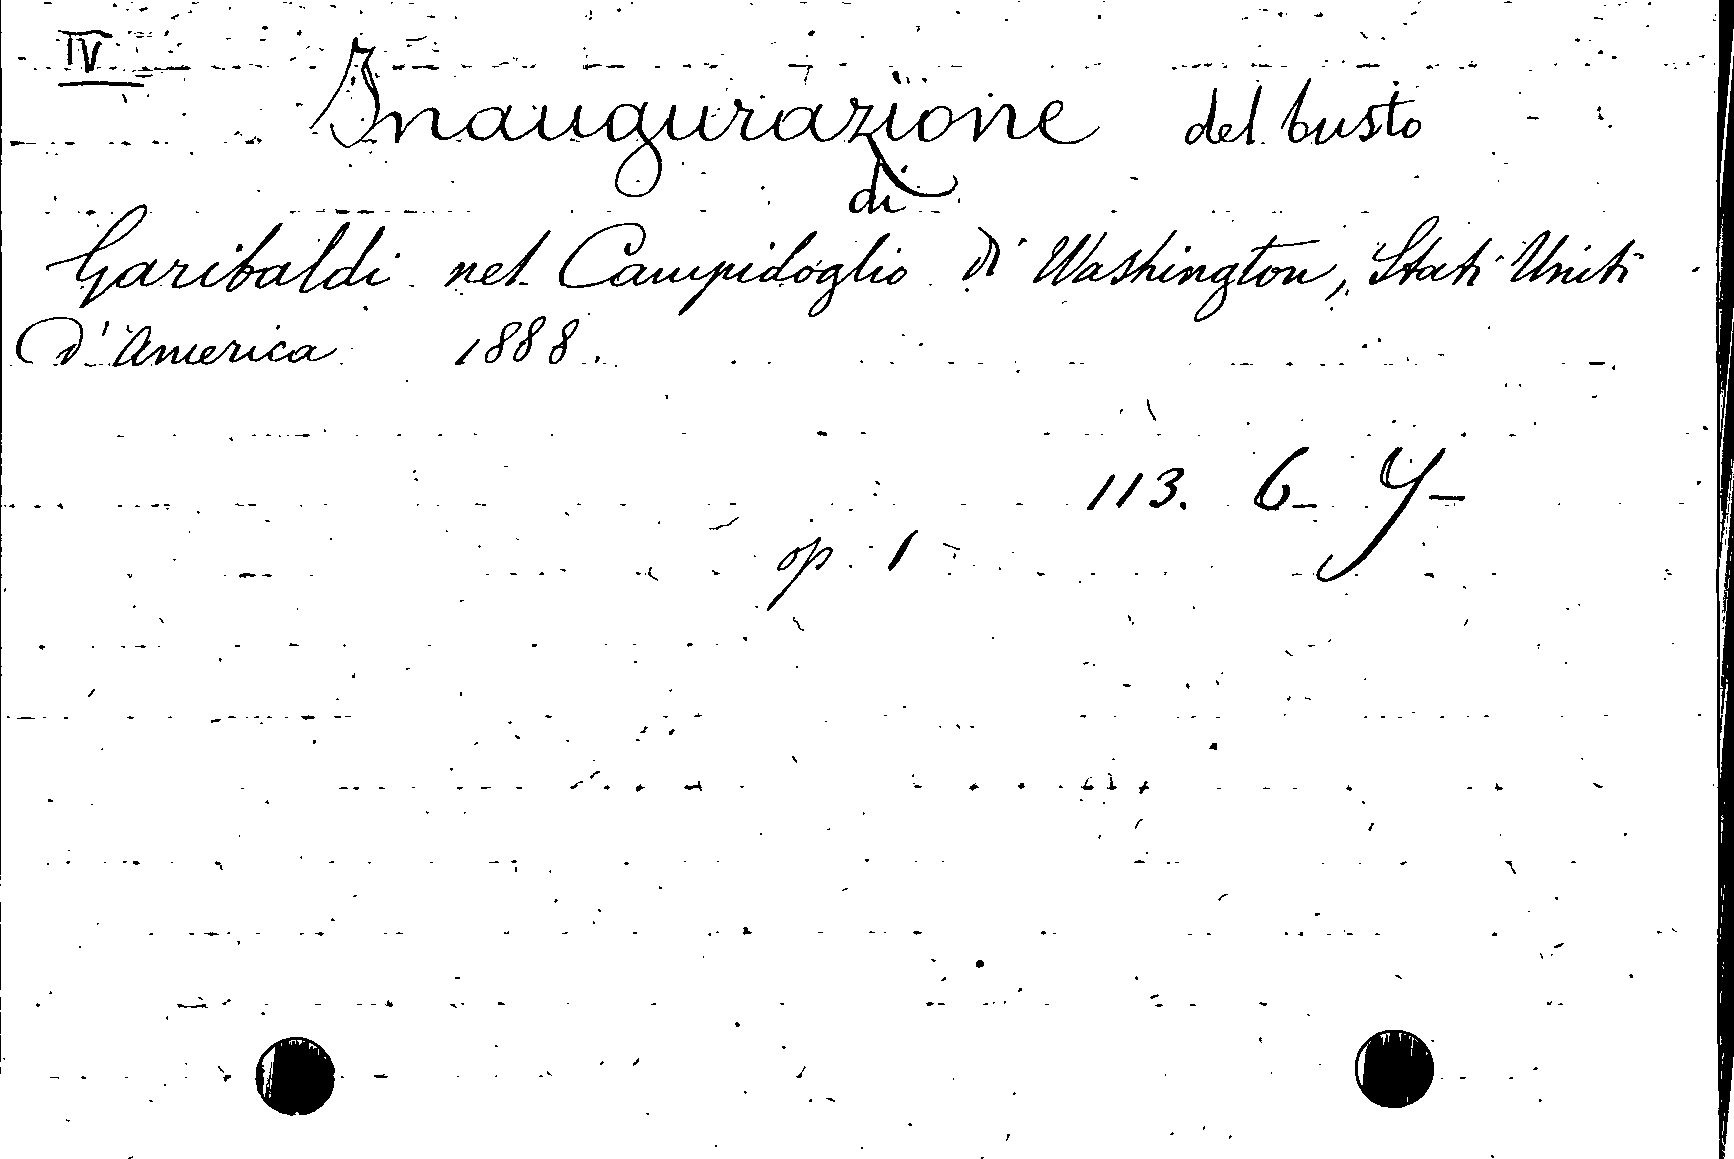 IV
Inaugurazione del busto
di
Garibaldi nel Campidoglio di Washington, Stati Uniti
d'America 1888.
113. 6- Y-
op. 1